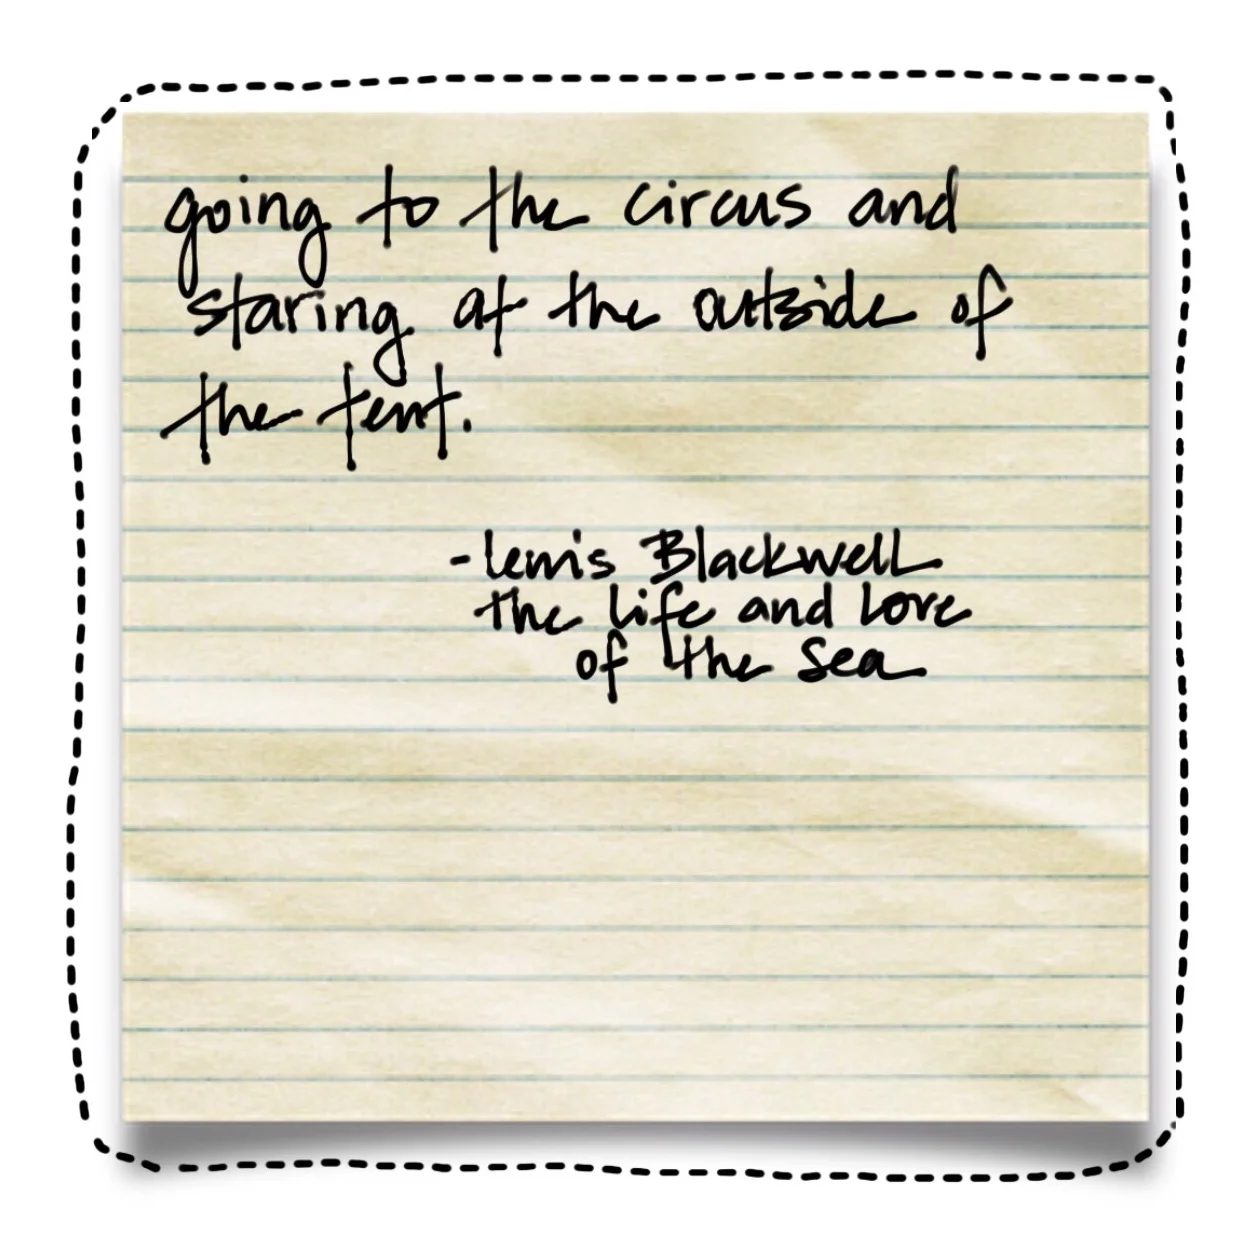 going to the circus and
staring at the outside of
the tent.
-Lewis Blackwell
the life and love
of the sea